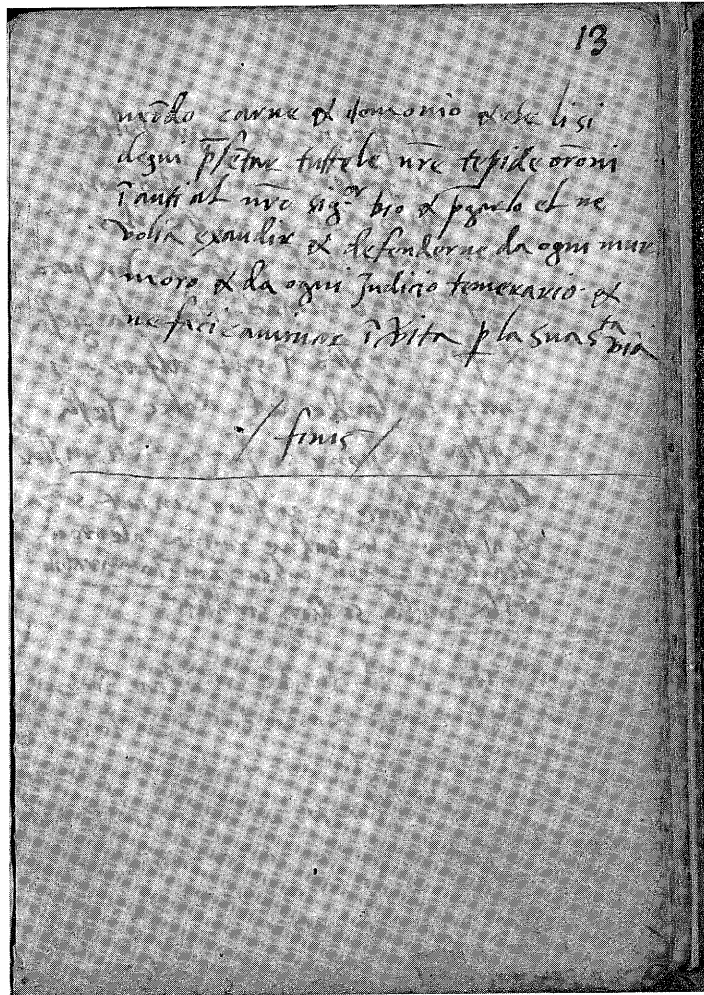 13
mūdo carne & demonio & che li si
degni p̄sētar tutte le nr̄e tepide orōni
ī anti al nr̄o sig.ᵒʳ Dio & p̄garlo el ne
volia exaudir & defenderne da ogni mur
moro & da ogni Judicio temerario &
ne faci caminar ī q̄sta vita ꝑ la sua s.ᵗᵃ via
/ finis /